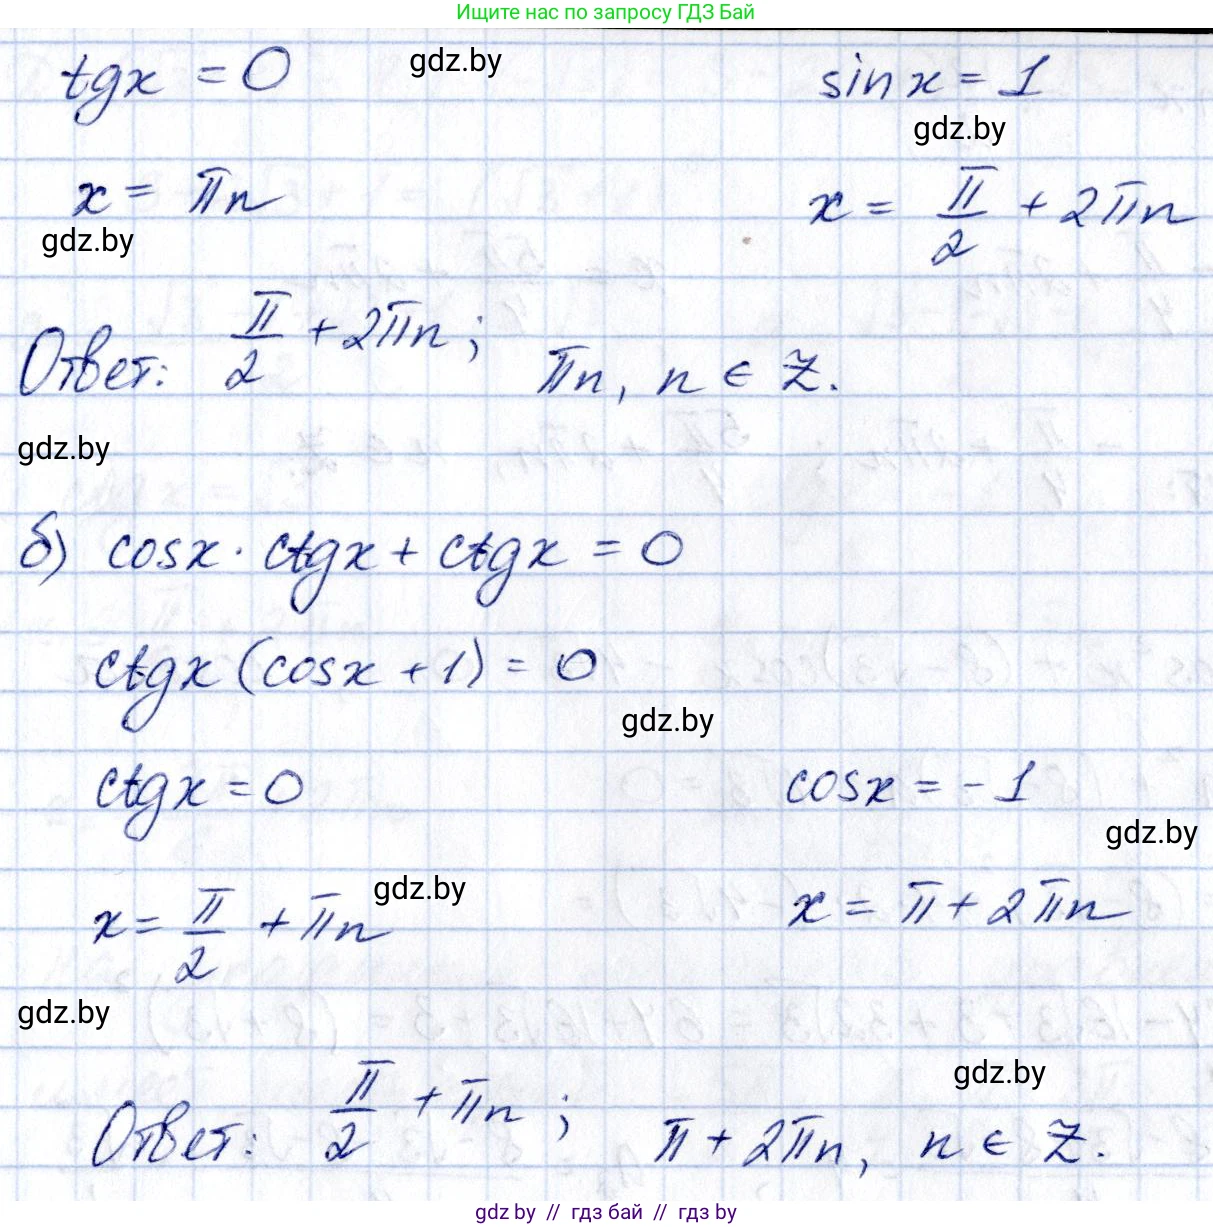 Ищите нас по запросу ГДЗ Бай
tgx = 0 gdz.by sin x = 1
gdz.by
x = πn x = π/2 + 2πn
gdz.by
Ответ: π/2 + 2πn; πn, n ∈ Z.
gdz.by
б) cosx · ctgx + ctgx = 0
ctgx (cosx + 1) = 0
gdz.by
ctgx = 0 cosx = -1
gdz.by
gdz.by
x = π/2 + πn x = π + 2πn
gdz.by
gdz.by
Ответ: π/2 + πn; π + 2πn, n ∈ Z.
gdz.by // гдз бай // гдз by